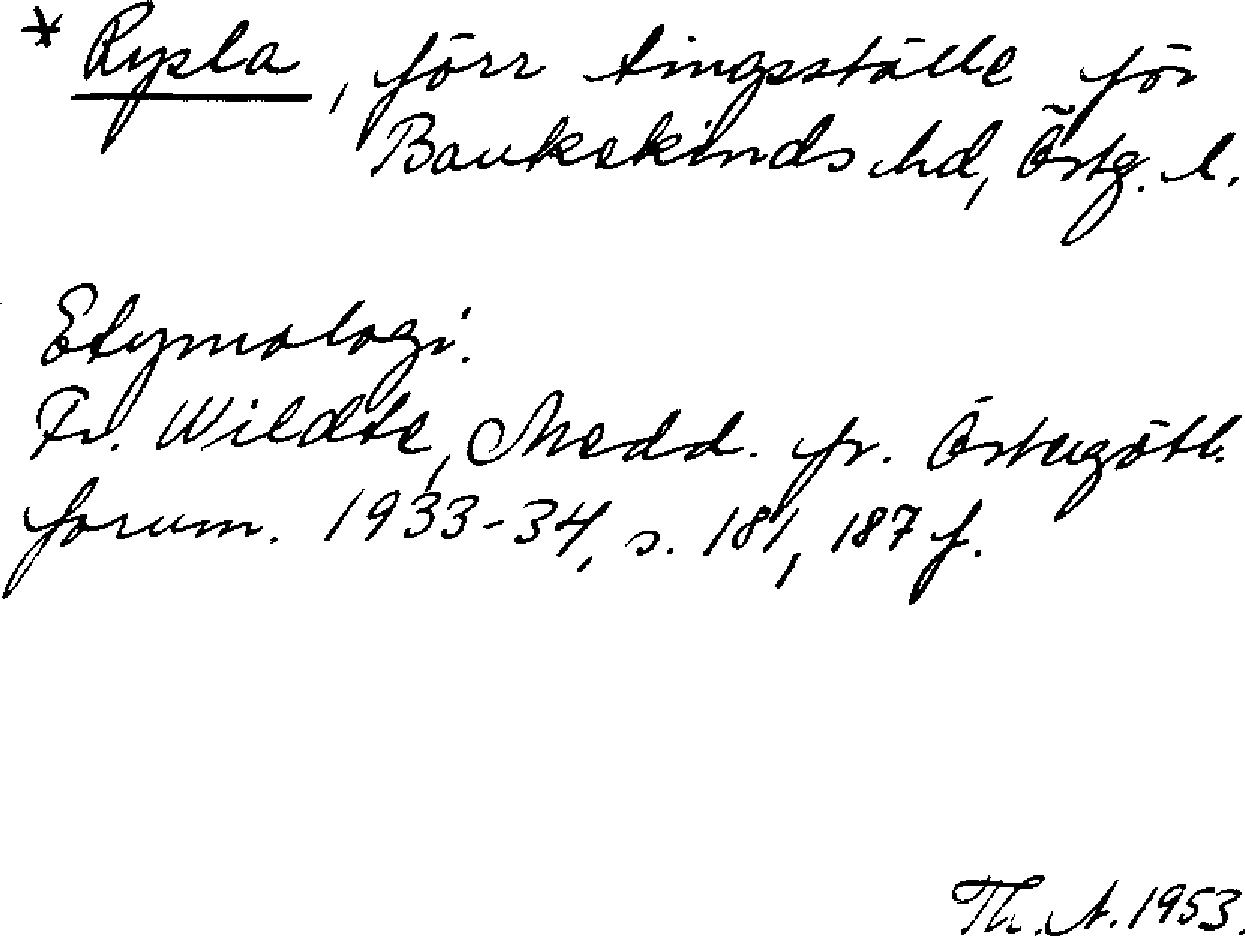 * Rypla, förr tingsställe för
Bankekinds hd, Östg. l.
Etymologi.
Fr. Wildte, Medd. fr. Östergötl.
fornm. 1933-34, s. 181, 187 f.
Th. A. 1953.